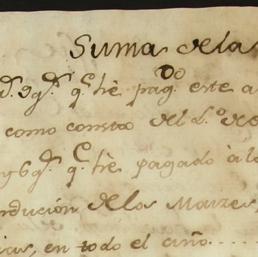 Suma de las
q.e he pag.do este a
como consta del L.o de
q.e he pagado à lo
nducion de los Maizes,
ias, en todo el año.....